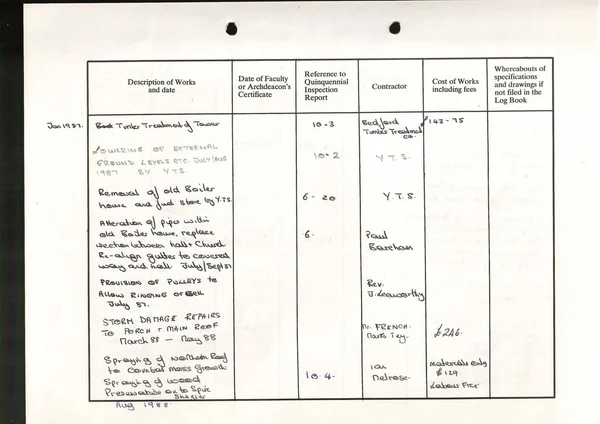 Description of Works
and date
Date of Faculty
or Archdeacon's
Certificate
Reference to
Quinquennial
Inspection
Report
Contractor
Cost of Works
including fees
Whereabouts of
specifications
and drawings if
not filed in the
Log Book
Jan 1987. Timber Treatment of Tower 10-3 Bedford £143-75
Timber Treatment
Co.
LOWERING OF EXTERNAL 10-2 Y.T.S.
GROUND LEVELS ETC. JULY/AUG
1987 BY Y.T.S.
Removal of old Boiler 6-20 Y.T.S.
house and fuel store by Y.T.S.
Alteration of pipes within 6. Paul
old Boiler house, replace Bareham
section between hall + Church
Re-align gutter to covered
way and hall. July/Sept 87
PROVISION OF PULLEYS TO Rev.
ALLOW RINGING OF BELL J.
July 87.
STORM DAMAGE REPAIRS FRENCH £246.
TO PORCH + MAIN ROOF
March 88 - May 88
Spraying of Northern Roof Ian Materials only
to Combat moss growth 10.4. Melrose £129
Spraying of wood Labour Free
Preservative on to Spire
Aug 1988